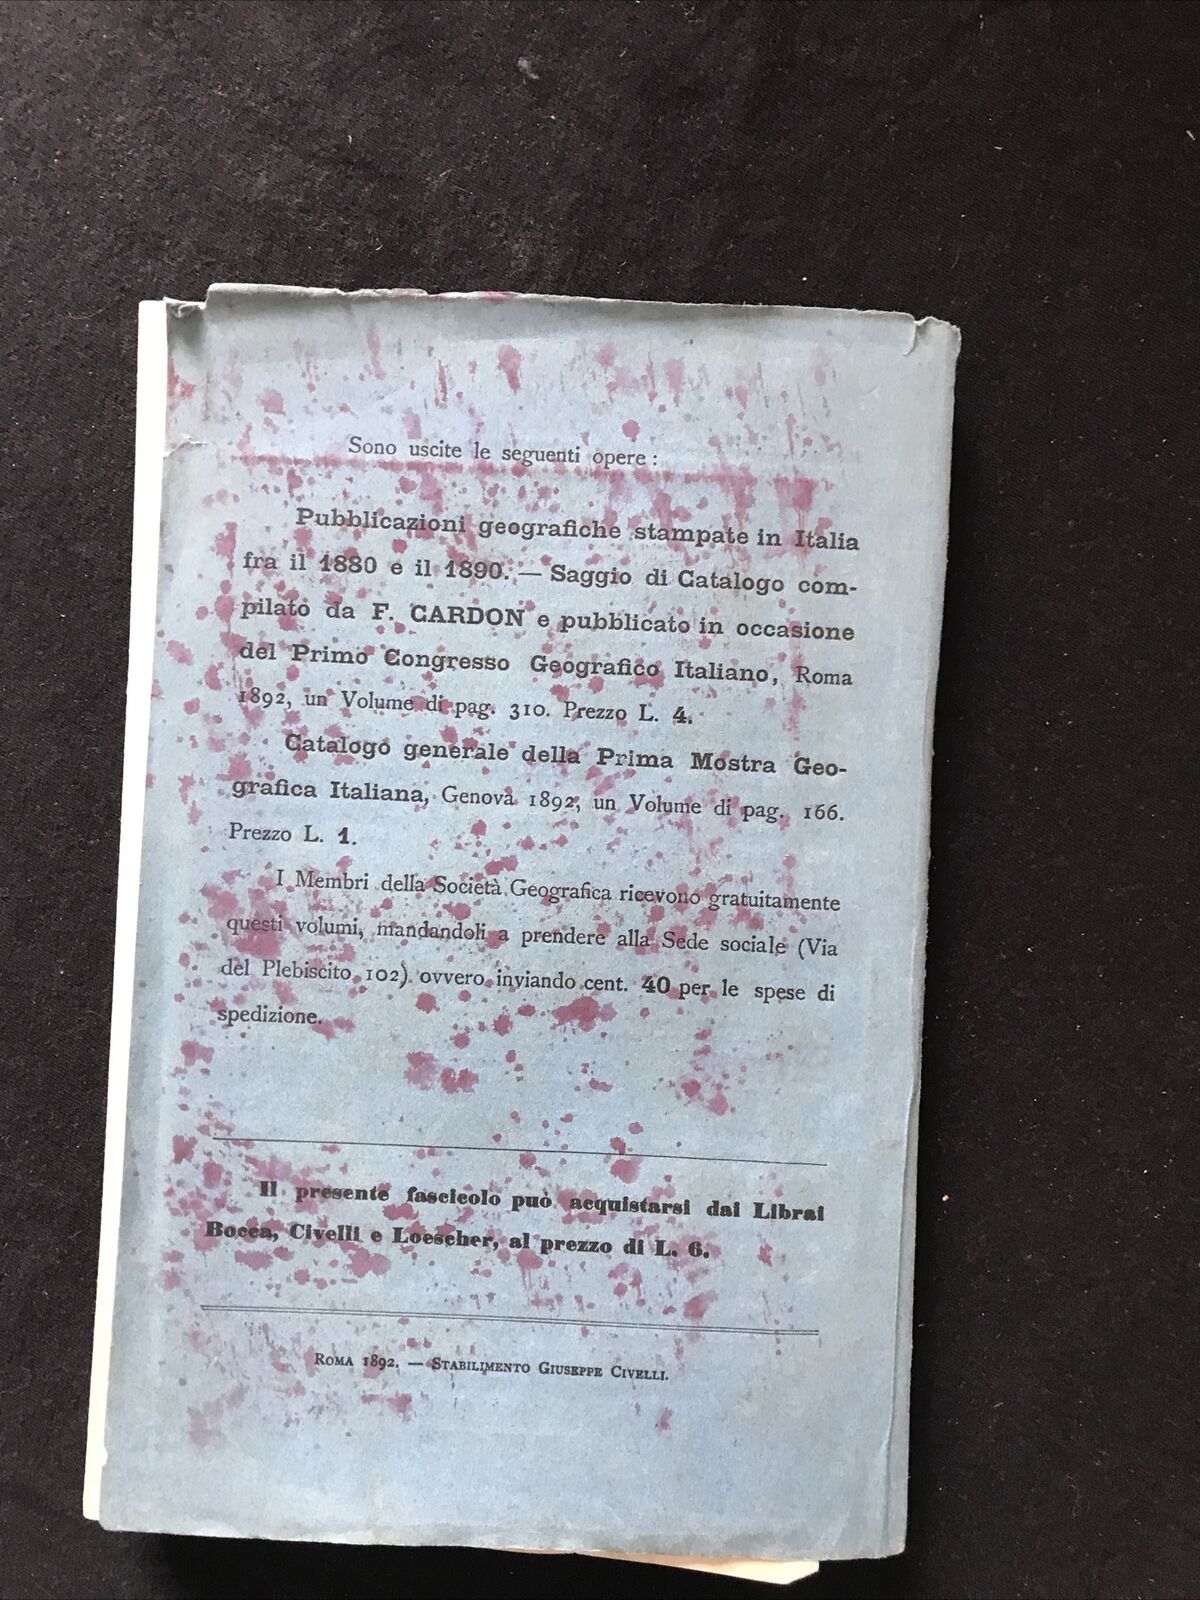 Sono uscite le seguenti opere :
Pubblicazioni geografiche stampate in Italia
fra il 1880 e il 1890. — Saggio di Catalogo com-
pilato da F. CARDON e pubblicato in occasione
del Primo Congresso Geografico Italiano, Roma
1892, un Volume di pag. 310. Prezzo L. 4.
Catalogo generale della Prima Mostra Geo-
grafica Italiana, Genova 1892, un Volume di pag. 166.
Prezzo L. 1.
I Membri della Società Geografica ricevono gratuitamente
questi volumi, mandandoli a prendere alla Sede sociale (Via
del Plebiscito 102) ovvero inviando cent. 40 per le spese di
spedizione.
Il presente fascicolo può acquistarsi dai Librai
Bocca, Civelli e Loescher, al prezzo di L. 6.
ROMA 1892. — STABILIMENTO GIUSEPPE CIVELLI.